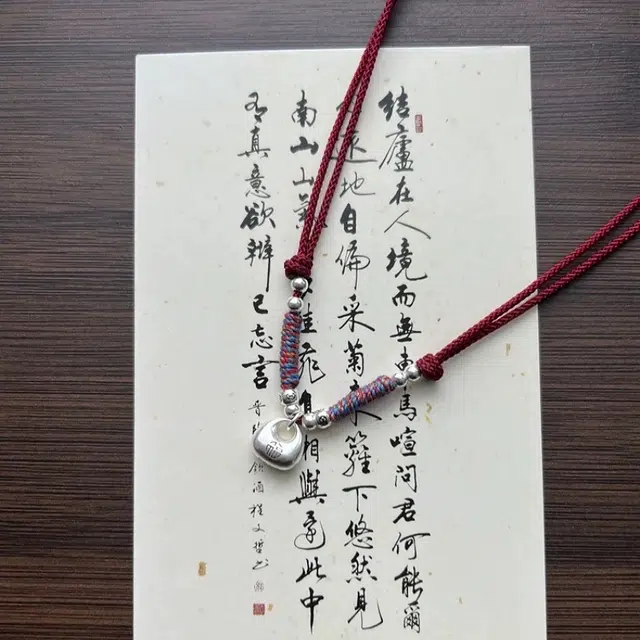 結廬在人境而無車馬喧問君何能爾
遠地自偏采菊東籬下悠然見
南山山氣佳飛相與還此中
有真意欲辨已忘言
飲酒程文哲书